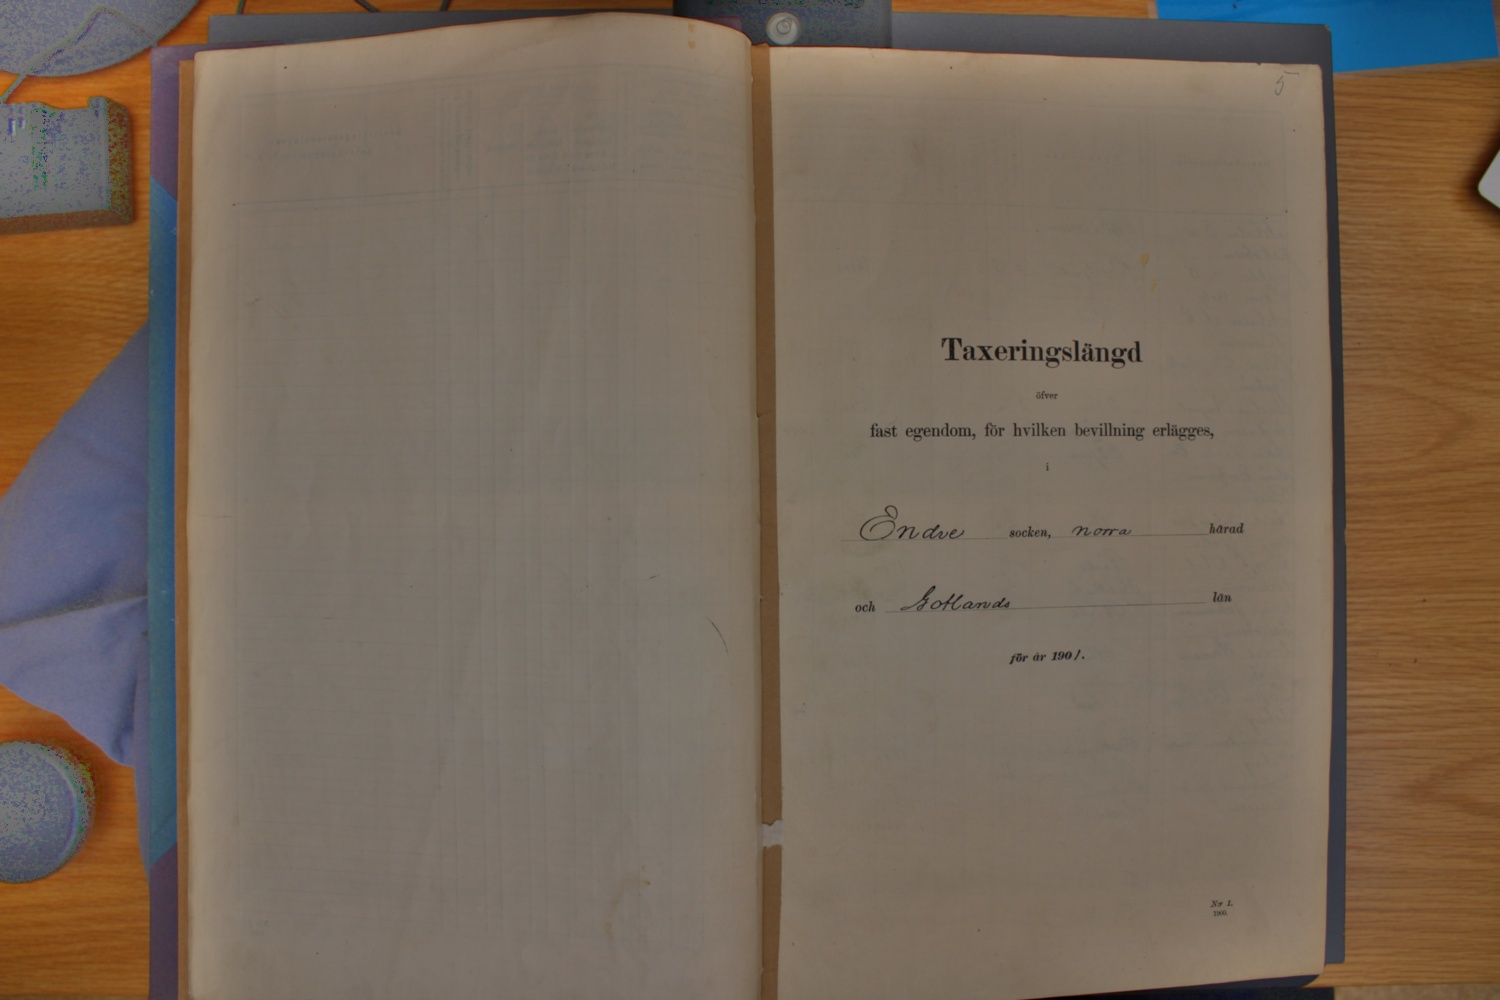 5
Taxeringslängd
öfver
fast egendom, för hvilken bevillning erlägges,
i
Endre socken, norra härad
och Gotlands län
för år 1901.
Nr 1.
1900.